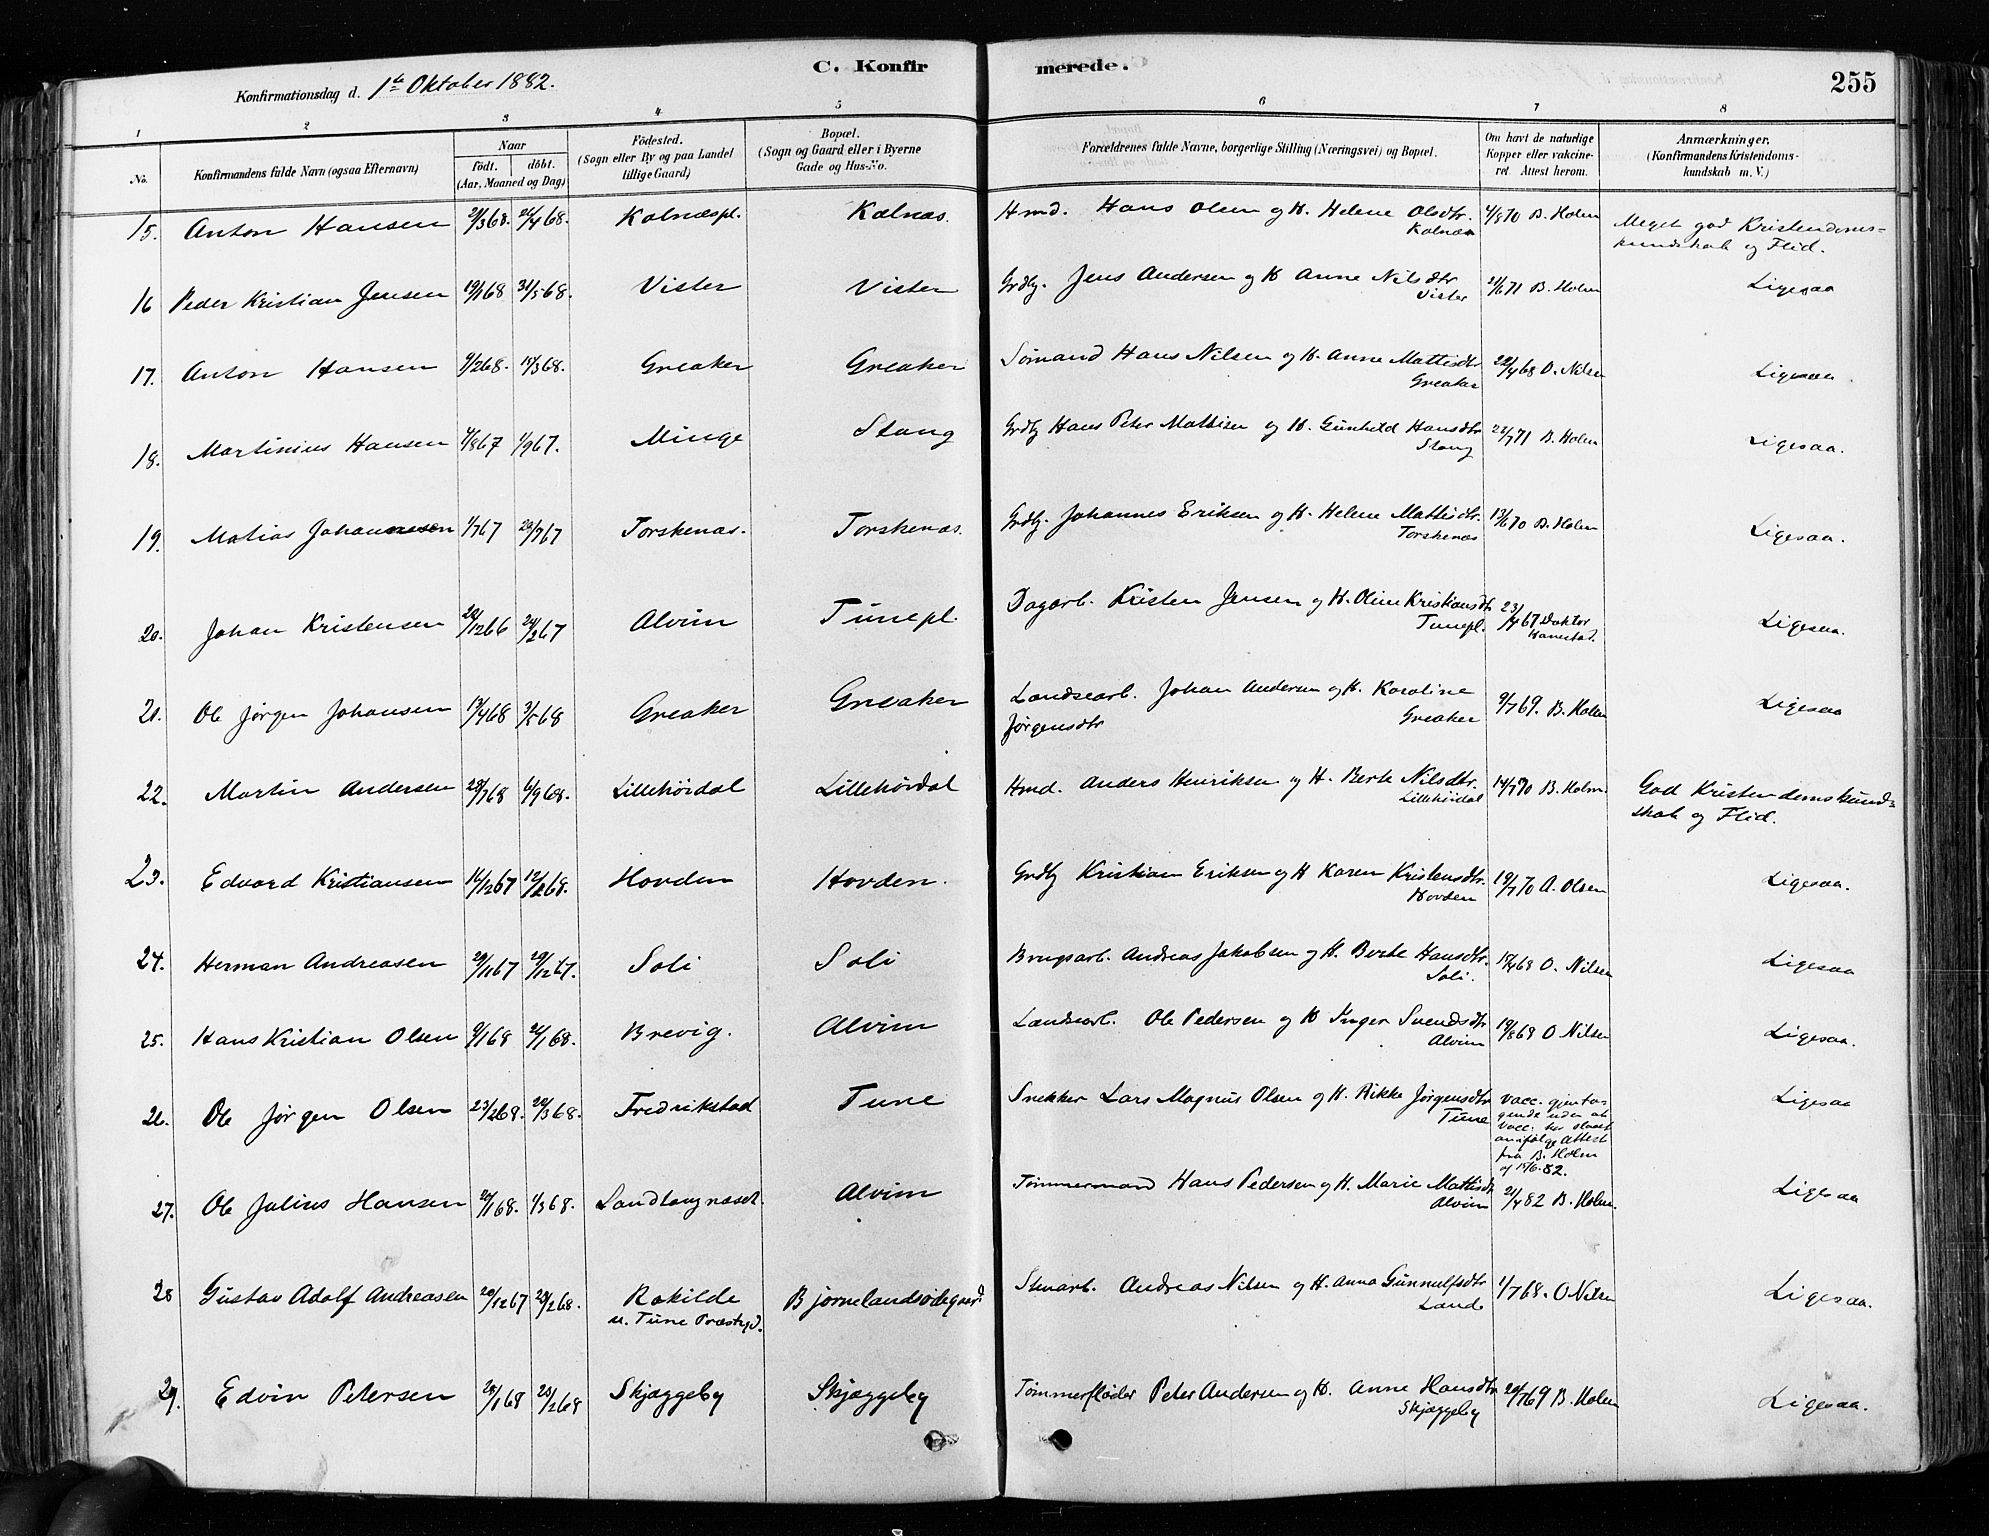 C. Konfirmerede.
255
Konfirmationsdag d. 1ste Oktober 1882.
1 2 3 4 5 6 7 8
No. Konfirmandens fulde Navn (ogsaa Efternavn) Naar født. døbt. (Aar, Maaned og Dag) Fødested. (Sogn eller By og paa Landet tillige Gaard) Bopæl. (Sogn og Gaard eller i Byerne Gade og Hus-No. Forældrenes fulde Navne, borgerlige Stilling (Næringsvei) og Bopæl. Om havt de naturlige Kopper eller vakcineret. Attest herom. Anmærkninger, (Konfirmandens Kristendomskundskab m. V.)
15. Anton Hansen 2/3 68. 26/4 68. Kalnæspl. Kalnæs. Hmd. Hans Olsen og H. Helene Olsdtr. Kalnæs 4/8 70 B. Holm Meget god Kristendomskundskab og Flid.
16 Peder Kristian Jensen 19/1 68 31/5 68. Vister Vister Grdbr. Jens Andersen og H Anne Nilsdtr Vister 21/6 71 B. Holm Ligesaa
17. Anton Hansen 9/2 68. 15/3 68. Greaker Greaker Sømand Hans Nilsen og H. Anne Mattisdtr Greaker 22/4 68 O. Nilsen Ligesaa.
18. Martinius Hansen 4/8 67 1/9 67. Minge Stang Grdbr Hans Peter Mathisen og H. Gunhild Hansdtr Stang 21/7 71 B. Holm Ligesaa.
19. Matias Johannesen 1/7 67 29/7 67 Torskenæs. Torskenæs. Grdbr. Johannes Eriksen og H. Helene Mattisdtr. Torskenæs 13/6 70 B. Holm Ligesaa.
20. Johan Kristensen 28/12 66 24/2 67 Alvim Tunepl. Dagarb. Kristen Jensen og H. Oline Kristiansdtr Tunepl. 23/4 67 Doktor Ligesaa.
21. Ole Jørgen Johansen 13/4 68 3/5 68 Greaker Greaker Landsearb. Johan Andersen og H. Karoline Jørgensdtr Greaker 9/7 69. B. Holm Ligesaa
22. Martin Andersen 28/7 68 6/9 68. Lillehøidal Lillehøidal Hmd. Anders Henriksen og H. Berte Nilsdtr. Lillehøidal 14/7 70 B. Holm. God Kristendomskundskab og Flid.
23. Edvard Kristiansen 16/12 67 12/2 68. Hovden Hovden. Grdbr Kristian Eriksen og H Karen Kristensdtr. Hovden 19/7 70 A. Olsen Ligesaa.
24. Herman Andreasen 29/11 67 29/12 67. Soli Soli Brugsarb. Andreas Jakobsen og H. Berte Hansdtr. Soli. 17/4 68 O. Nilsen Ligesaa
25. Hans Kristian Olsen 9/1 68 26/1 68. Brevig. Alvim Landsearb. Ole Pedersen og H Inger Svendsdtr Alvim 19/8 68 O Nilsen Ligesaa.
26. Ole Jørgen Olsen 23/2 68. 22/3 68. Fredrikstad Tune Snekker Lars Magnus Olsen og H. Rikke Jørgensdtr Tune Vacc. gjentagende uden at Vacc. har slaaet an ifølge Attest fra B. Holm af 15/6 82. Ligesaa
27. Ole Julius Hansen 24/1 68. 1/3 68. Sandtangnæset. Alvim Tømmermand Hans Pedersen og H. Marie Mattisdtr Alvim 21/4 82 B. Holm. Ligesaa
28 Gustav Adolf Andreasen 20/12 67 28/2 68. Rokilde u. Tune Præstegd. Bjørnelandsødegaard Stenarb. Andreas Nilsen og H. Anna Gunnulfsdtr Lande 1/7 68. O Nilsen Ligesaa.
29. Edvin Petersen 28/1 68 23/2 68 Skjæggeby Skjæggeby Tømmerfløder Peter Andersen og H. Anne Hansdtr Skjæggeby 20/7 69 B. Holm Ligesaa.